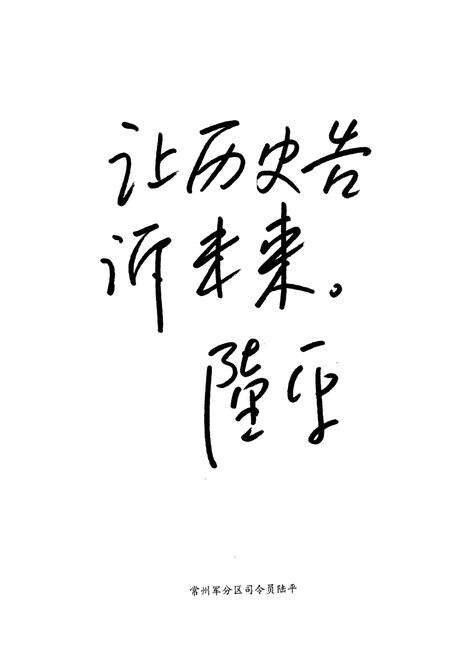 让历史告
诉未来。
陸平
常州军分区司令员陆平